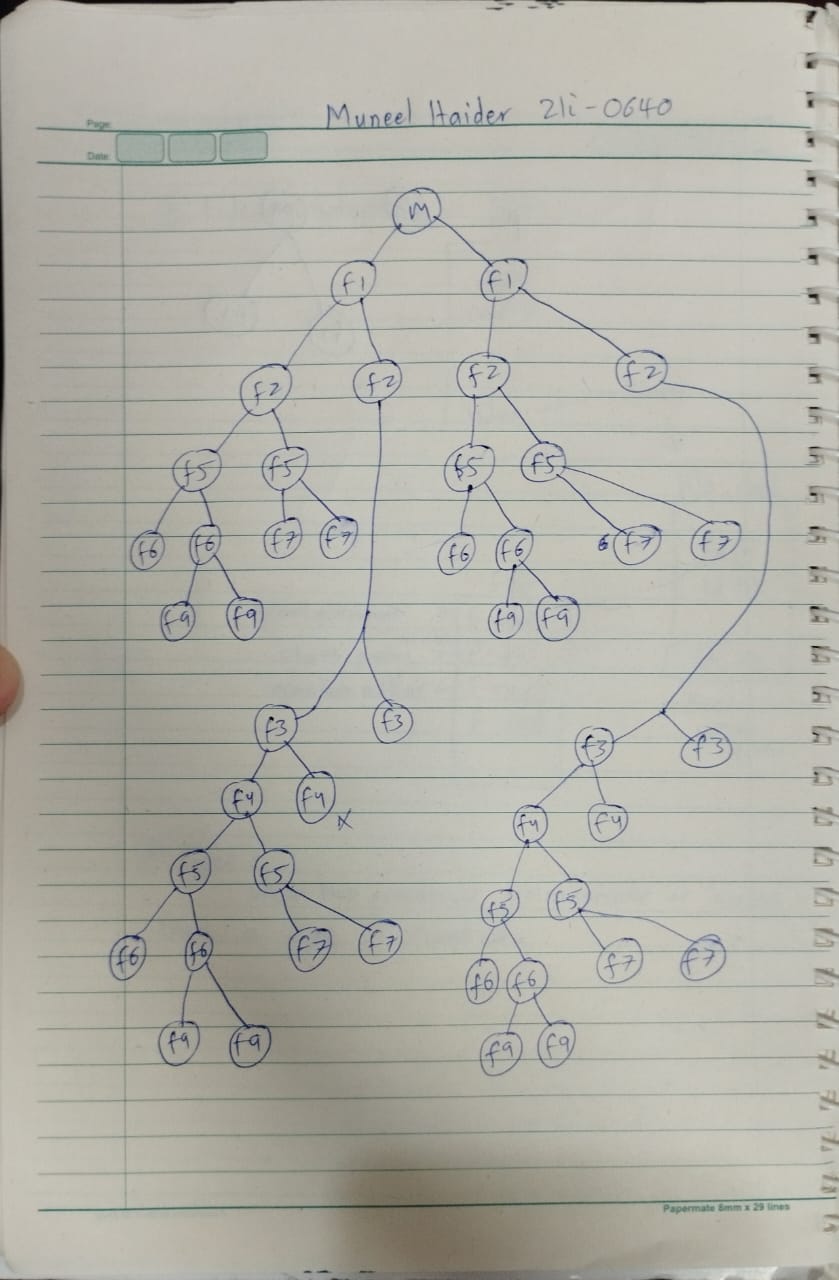 Muneel Haider 21i-0640
Page:
Date:
M
f1 f1
f2 f2 f2 f2
f5 f5 f5 f5
f6 f6 f7 f7 f6 f6 f7 f7
f9 f9 f9 f9
f3 f3 f3 f3
f4 f4 x f4 f4
f5 f5 f5 f5
f6 f6 f7 f7 f6 f6 f7 f7
f9 f9 f9 f9
Papermate 8mm x 29 lines